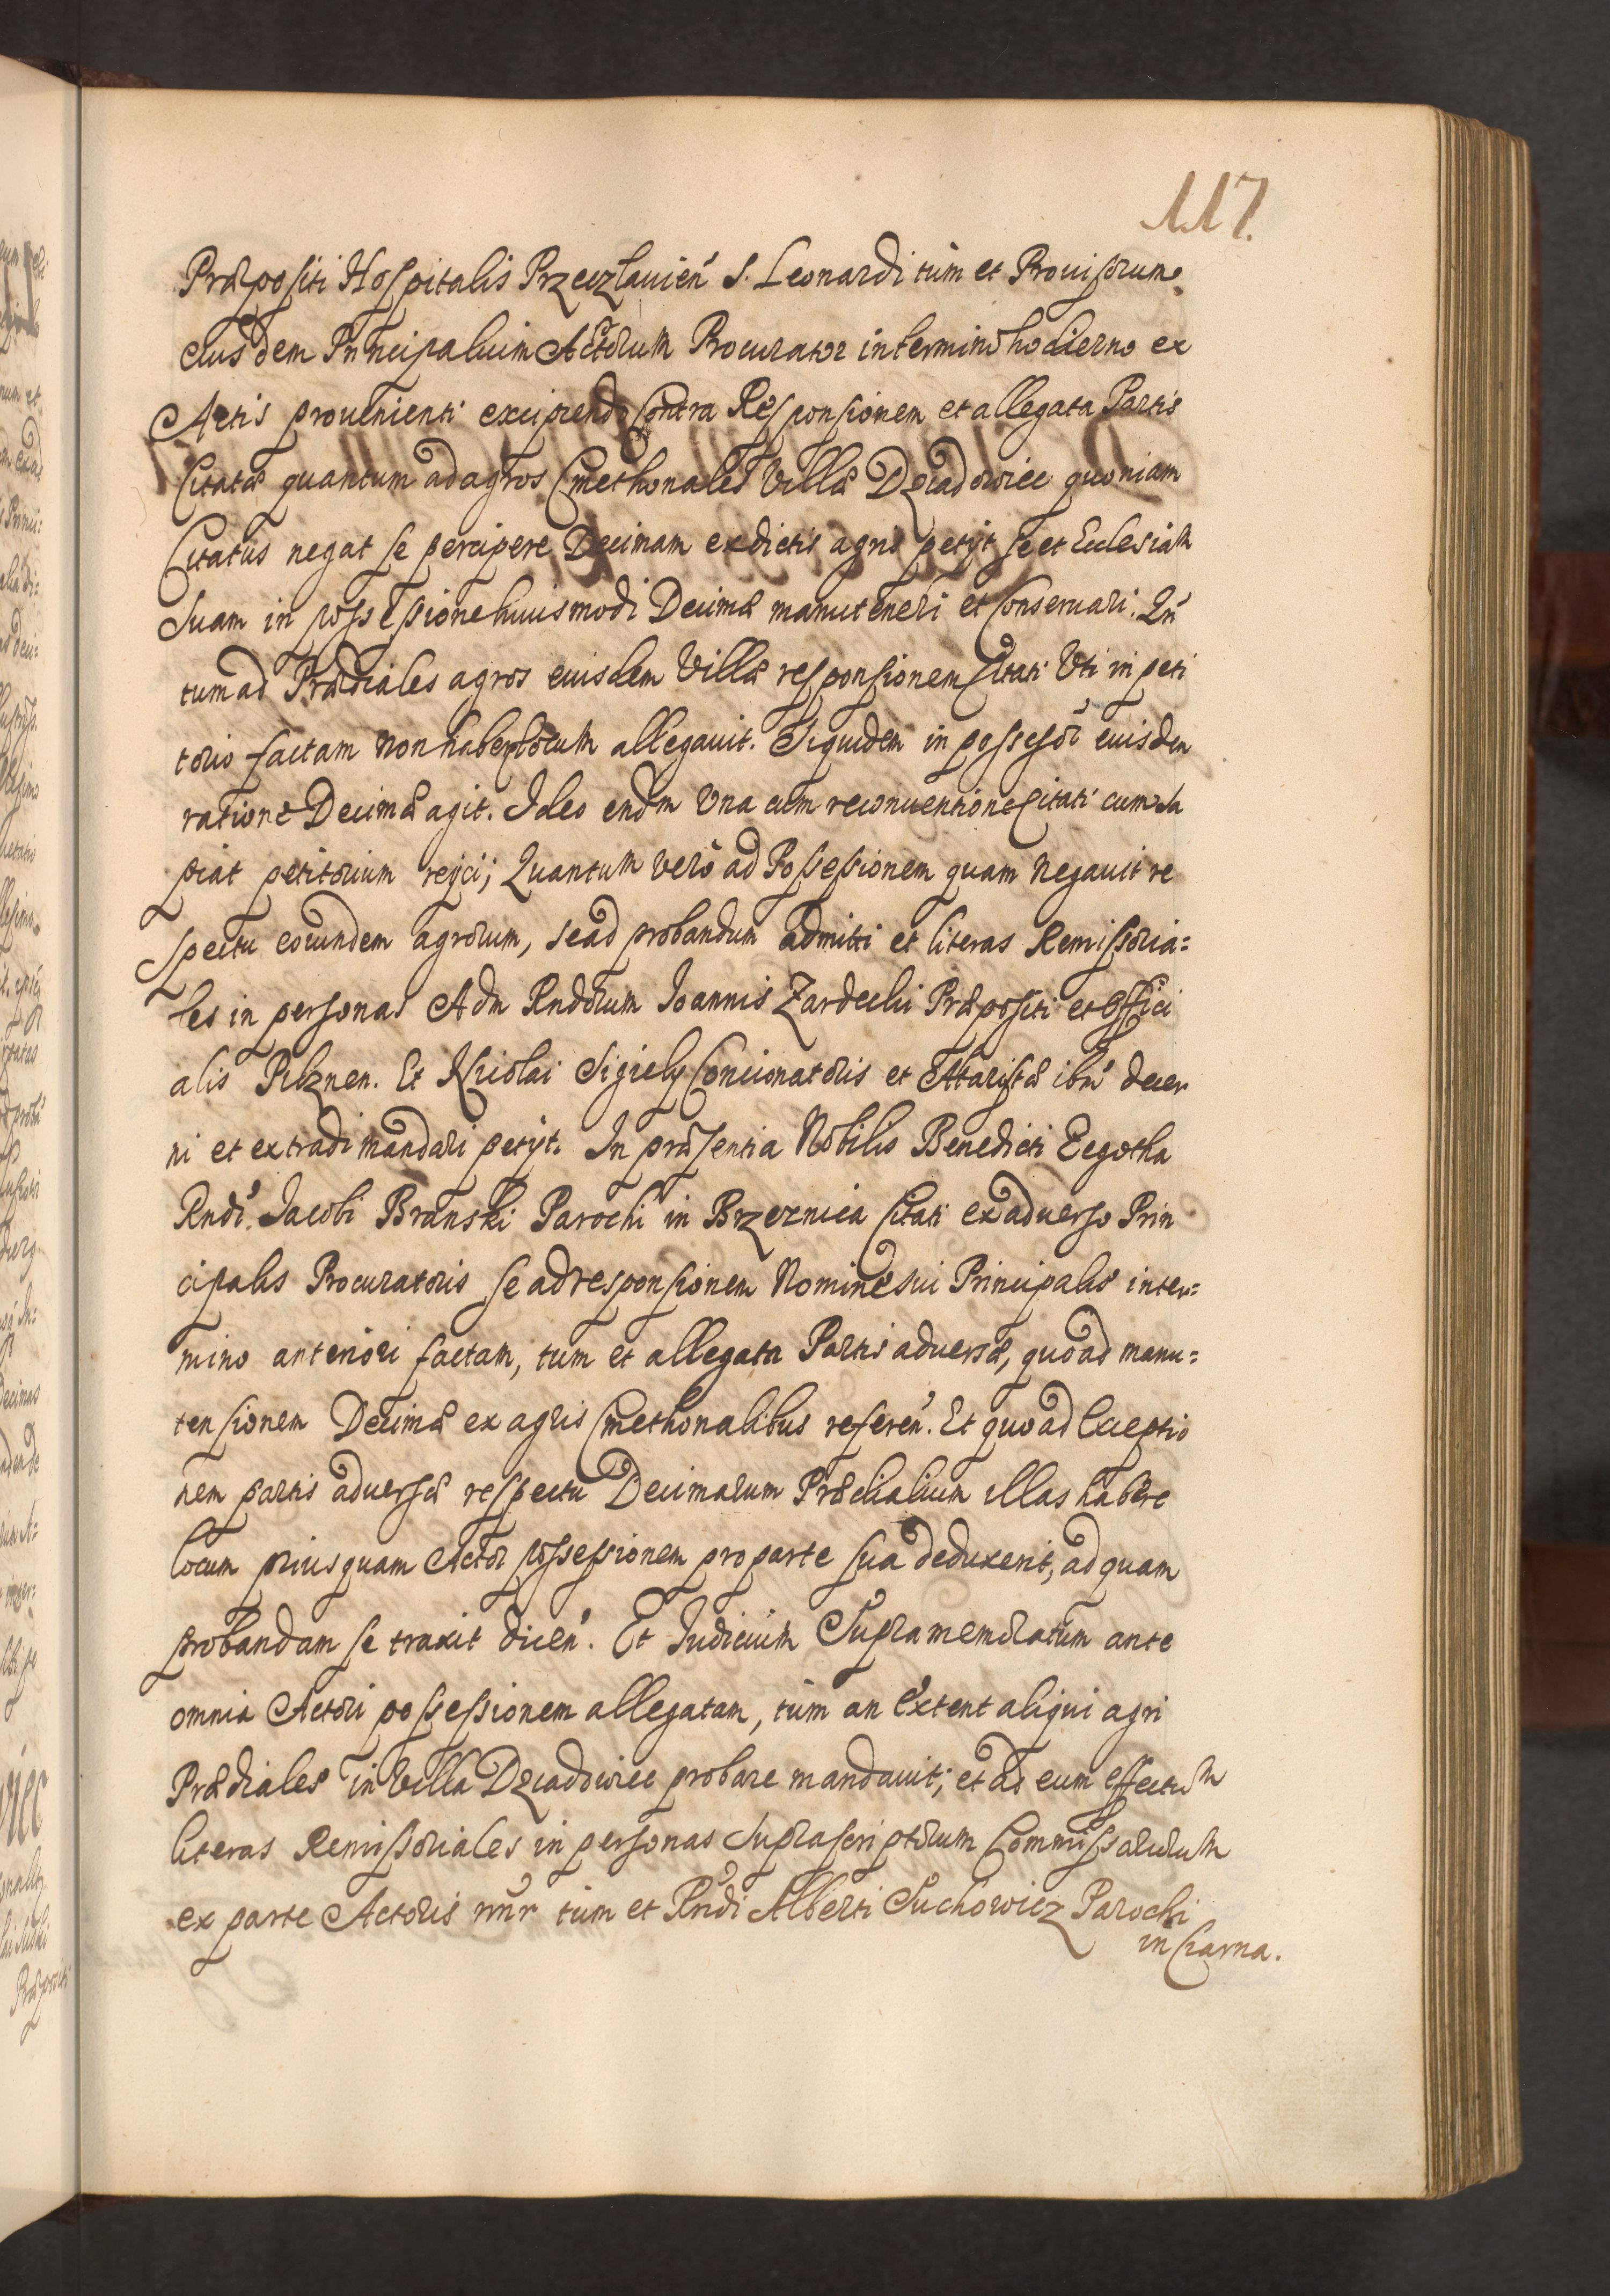 117.
Præpositi Hospitalis Przeczlauien̄ S. Leonardi tùm et Prouisorum
eius dem Principalium Actorum Procurator in termino hodierno ex
Actis prouenienti excipiendo contra Responsionem et allegata Partis
Citatæ quantum ad agros Cmethonales Villæ Dziadowiec quoniam
Citatus negat se percipere Decimam ex dictis agris petijt se et Ecclesiam
Suam in possessione huiusmodi Decimæ manuteneri et conseruari. Qn̄
tum ad Prædiales agros euisdem Villæ responsionem Citati Uti in peti
torio factam non habere locum allegauit. Siquidem in possessor̄ euisdem
ratione Decimæ agit. Ideo endm Una cum reconuentione Citati cum sa
piat petitorium reijci; Quantum verò ad Possessionem quam negauit re
spectu eorundem agrorum, se ad probandum admitti et literas Remissoria=
les in personas Adm Rndorum Ioannis Zardecki Præpositi et Offici
alis Pilznen. Et Nicolai Sigiely Concionatoris et Altaristæ ibn̄ decer
ni et extradi mandari petijt. In præsentia Nobilis Benedicti Eegotha
Rndi Iacobi Branski Parochi in Brzeznica Citati ex aduerso Prin
cipalis Procuratoris se ad responsionem Nomine sui Principalis in ter=
mino anteriori factam, tum et allegata Partis aduersæ, quoad manu=
tensionem Decimæ ex agris Cmethonalibus referen̄. Et quo ad Exceptio
nem partis aduersæ respectu Decimarum Prædialium illas habere
locum priusquam Actor possessionem pro parte sua deduxerit, ad quam
probandam se traxit dicen̄. Et Iudicium Supramemoratum ante
omnia Actori possessionem allegatam, tùm an extent aliqui agri
Prædiales in Villa Dziadowiec probare mandauit; et ad eum effectum
literas Remissoriales in personas Suprascriptorum Commissariorum
ex parte Actoris nn̄r tùm et Rndi Alberti Suchowicz Parochi
in Czarna.